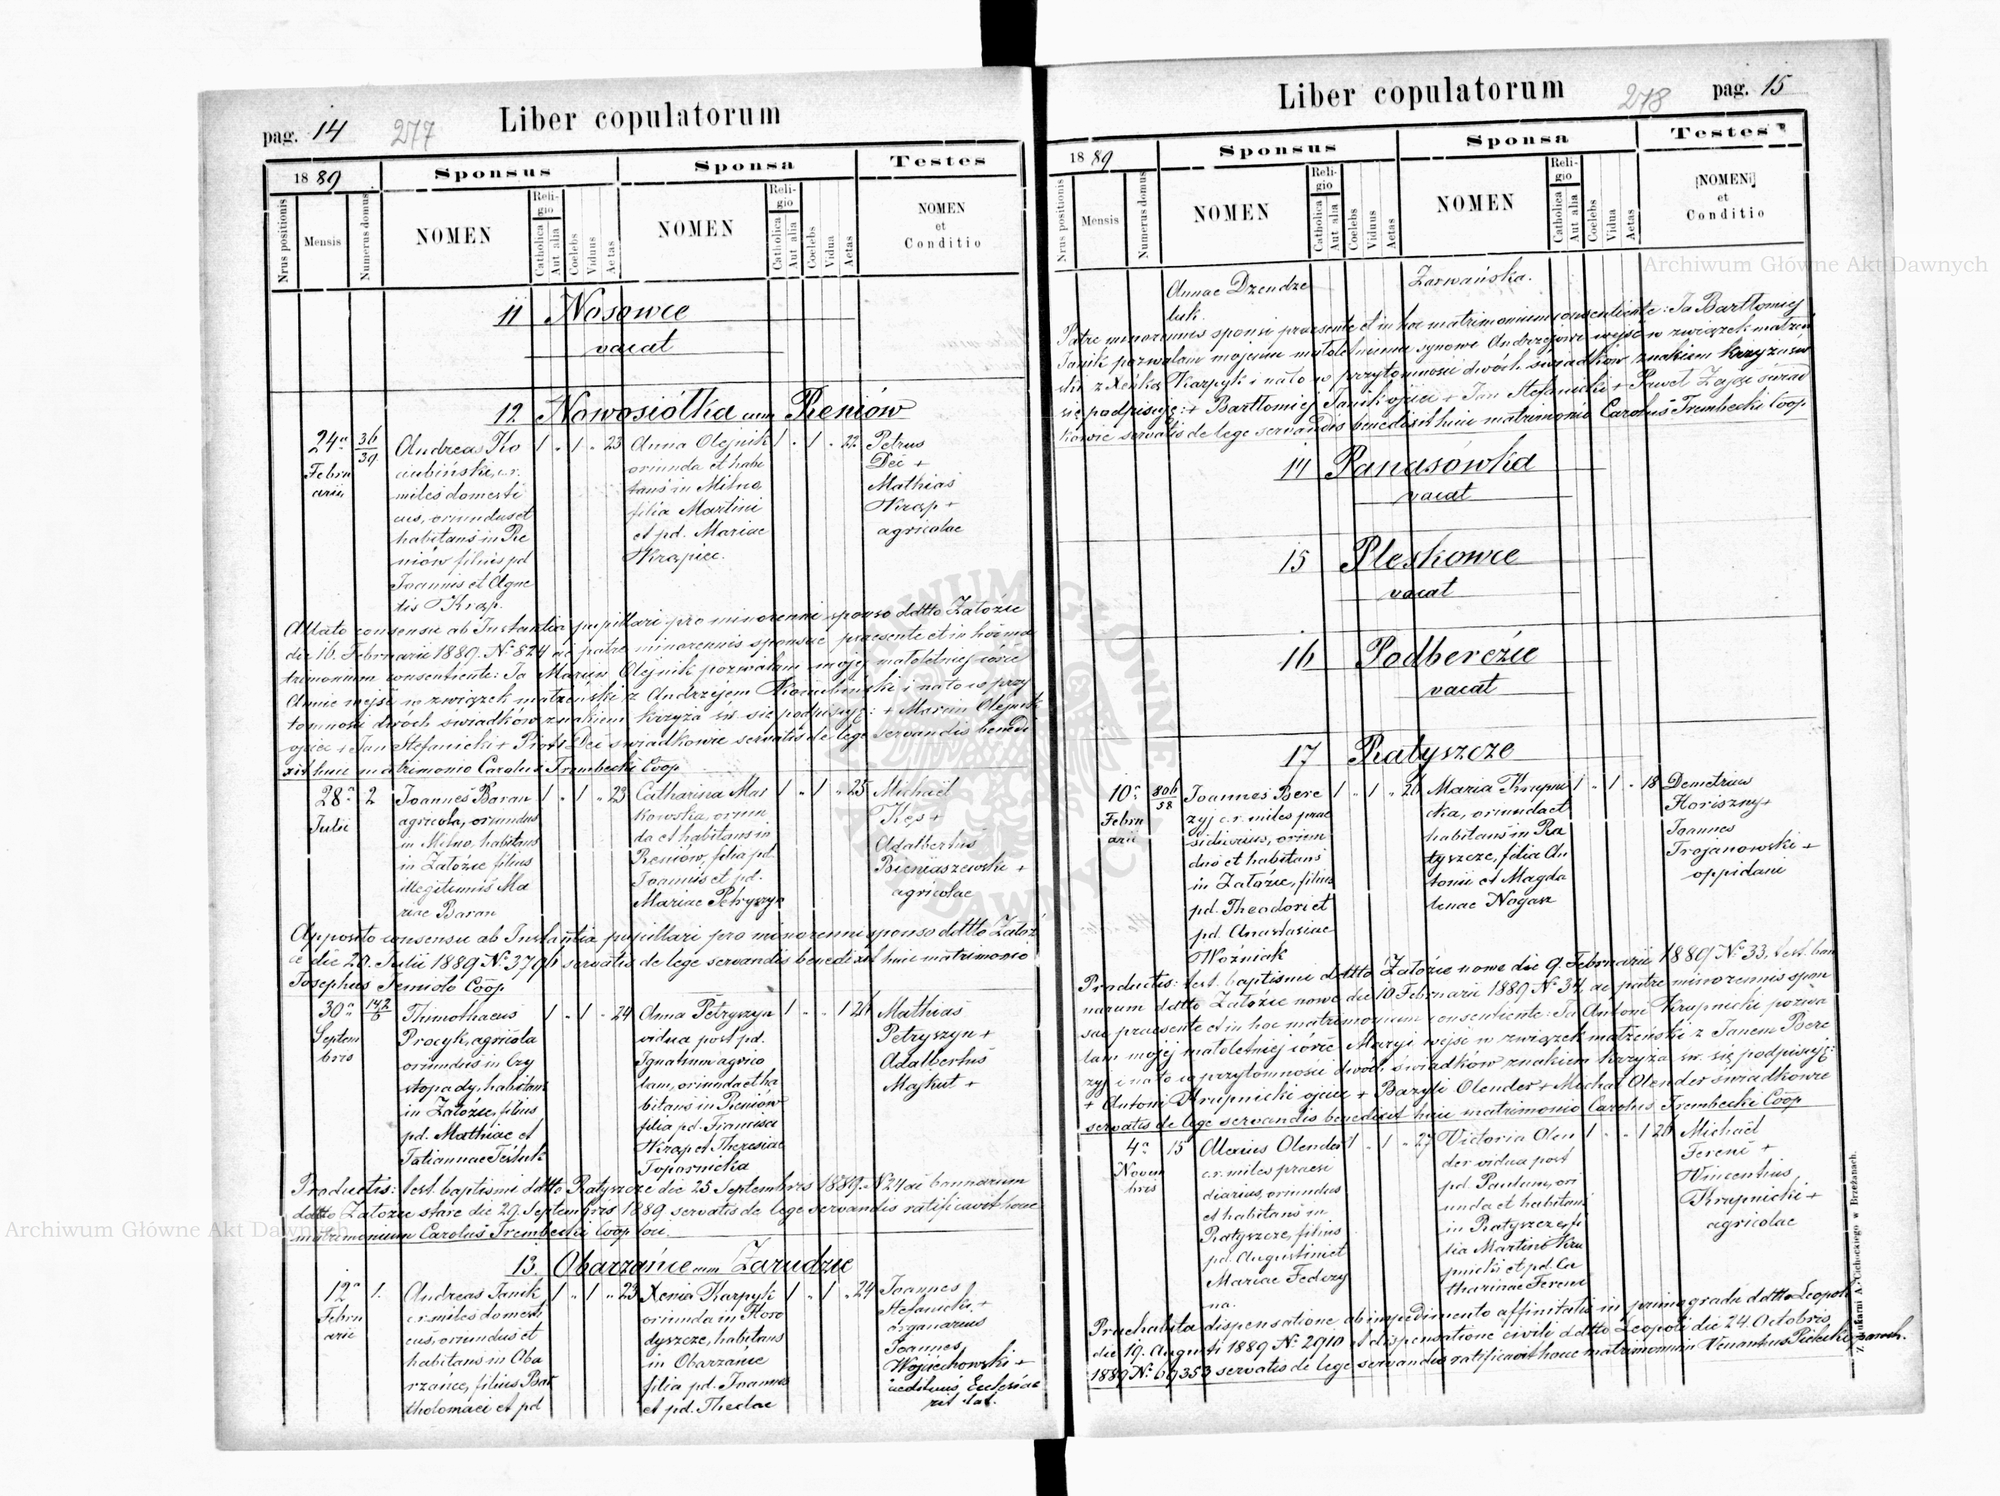 pag. 14
277
Liber copulatorum
1889
Sponsus
Sponsa
Testes
Nrus positionis
Mensis
Numerus domus
NOMEN
Religio
Catholica
Aut alia
Coelebs
Viduus
Aetas
NOMEN
Religio
Catholica
Aut alia
Coelebs
Vidua
Aetas
NOMEN
et
Conditio
11 Nosowce
vacat
12 Nowosiółka cum Reniów
24a
Febru
arii
36
39
Andreas Ko
ciubiński, c.r.
miles domesti
cus, oriundus et
habitans in Re
niów filius pd
Joannis et Agne
tis Krap.
1 " 1 " 23
Anna Olejnik
oriunda et habi
tans in Milno,
filia Martini
et pd. Mariae
Krapiec.
1 " 1 " 22
Petrus
Dec +
Mathias
Krap +
agricolae
Allato consensu ab Instantia pupillari pro minorenni sponso ddtto Załoźce
die 16. Februarii 1889. No 824 ac patre minorennis sponsae praesente et in hoc ma
trimonium consentiente: Ja Marcin Olejnik pozwalam mojej małoletniej córce
Annie wejść w związek małżeński z Andrzejem Kociubiński i na to w przy
tomności dwóch świadków znakiem krzyża św. się podpisuję: + Marcin Olejnik
ojciec + Jan Stefanicki + Piotr Dec świadkowie servatis de lege servandis benedi
xit huic matrimonio Carolus Trembecki Coop
28a
Julii
2
Joannes Baran
agricola, oriundus
in Milno, habitans
in Załoźce filius
illegitimus Ma
riae Baran
1 " 1 " 23
Catharina Mas
kowska, oriun
da et habitans in
Reniów, filia pd.
Joannis et pd.
Mariae Petryszyn
1 " 1 " 25
Michael
Kęs +
Adalbertus
Bieniaszewski +
agricolae
Apposito consensu ab Instantia pupillari pro minorenni sponso ddtto Załoź
ce die 20. Julii 1889 No 3796 servatis de lege servandis benedixit huic matrimonio
Josephus Temiolo Coop
30a
Septem
bris
142
6
Thimothaeus
Procyk, agricola
oriundus in Czy
stopady, habitans
in Załoźce, filius
pd. Mathiae et
Tatiannae
1 " 1 " 24
Anna Petryszyn
vidua post pd.
Ignatium agrico
lam, oriunda et ha
bitans in Reniów
filia pd. Francisci
Krap et Theresiae
Topornicka
1 " " 1 26
Mathias
Petryszyn +
Adalbertus
Majkut +
Productis: test. baptismi ddtto Ratyszcze die 25 Septembris 1889. N 24 ac bannorum
ddtto Załoźce stare die 29. Septembris 1889 servatis de lege servandis ratificavit hoce
matrimonium Carolus Trembecki Coop loci
13. Obarzańce cum Zarudzie
12a
Febru
arii
1.
Andreas Janik
c.r. miles domesti
cus, oriundus et
habitans in Oba
rzańce, filius Bar
tholomaei et pd
1 " 1 " 23
Xenia Karpyk
oriunda in Horo
dyszcze, habitans
in Obarzańce
filia pd. Joannis
et pd. Theclae
1 " 1 " 24
Joannes
Stefanicki +
organarius
Joannes
Wojciechowski +
aedituus Ecclesiae
rit. lat.
Liber copulatorum
278
pag. 15
1889
Sponsus
Sponsa
Testes
Nrus positionis
Mensis
Numerus domus
NOMEN
Religio
Catholica
Aut alia
Coelebs
Viduus
Aetas
NOMEN
Religio
Catholica
Aut alia
Coelebs
Vidua
Aetas
NOMEN
et
Conditio
Annae Dzendze
luk.
Zarwańska.
Patre minorennis sponsi praesente et in hoc matrimonium consentiente: Ja Bartłomiej
Janik pozwalam mojemu małoletniemu synowi Andrzejowi wejść w związek małżeń
ski z Xenką Karpyk i na to w przytomności dwóch świadków znakiem krzyża św.
się podpisuję: + Bartłomiej Janik ojciec + Jan Stefanicki + Paweł Zając świad
kowie servatis de lege servandis benedixit huic matrimonio Carolus Trembecki Coop
14 Panasówka
vacat
15 Pleskowce
vacat
16 Podberézie
vacat
17 Ratyszcze
10a
Febru
arii
806
58
Joannes Bere
zyj c.r. miles prae
sidiarius, oriun
dus et habitans
in Załoźce, filius
pd. Theodori et
pd. Anastasiae
Woźniak
1 " 1 " 26
Maria Krupni
cka, oriunda et
habitans in Ra
tyszcze, filia An
tonii et Magda
lenae Nogas
1 " 1 " 18
Demetrius
Horiszny +
Joannes
Trojanowski +
oppidani
Productis: test. baptismi ddtto Załoźce nowe die 9. Februarii 1889 No 33, test. ban
norum ddtto Załoźce nowe die 10 Februarii 1889 No 34, ac patre minorennis spon
sae praesente et in hoc matrimonium consentiente: Ja Antoni Krupnicki pozwa
lam mojej małoletniej córce Maryi wejść w związek małżeński z Janem Bere
zyj i na to w przytomności dwóch świadków znakiem krzyża św. się podpisuję:
+ Antoni Krupnicki ojciec + Bazyli Olender + Michał Olender świadkowie
servatis de lege servandis benedixit huic matrimonio Carolus Trembecki Coop
4a
Novem
bris
15
Alexius Olender
c.r. miles praesi
diarius, oriundus
et habitans in
Ratyszcze, filius
pd. Augustini et
Mariae Fedczy
na.
1 " 1 " 27
Victoria Olen
der vidua post
pd. Paulum, ori
unda et habitans
in Ratyszcze, fi
lia Martini Kru
pnicki et pd. Ca
tharinae Ferenc
1 " " 1 26
Michael
Ferenc +
Vincentius
Krupnicki +
agricolae
Praehabita dispensatione ab impedimento affinitatis in primo gradu ddtto Leopoli
die 19. Augusti 1889 No 2910 et dispensatione civili ddtto Leopoli die 24 Octobris
1889 No 69353 servatis de lege servandis ratificavit hoce matrimonium Venantius paroch.
Z drukarni A. Cichockiego w Brzeżanach.
Archiwum Główne Akt Dawnych
Archiwum Główne Akt Dawnych
ARCHIWUM GŁÓWNE AKT DAWNYCH